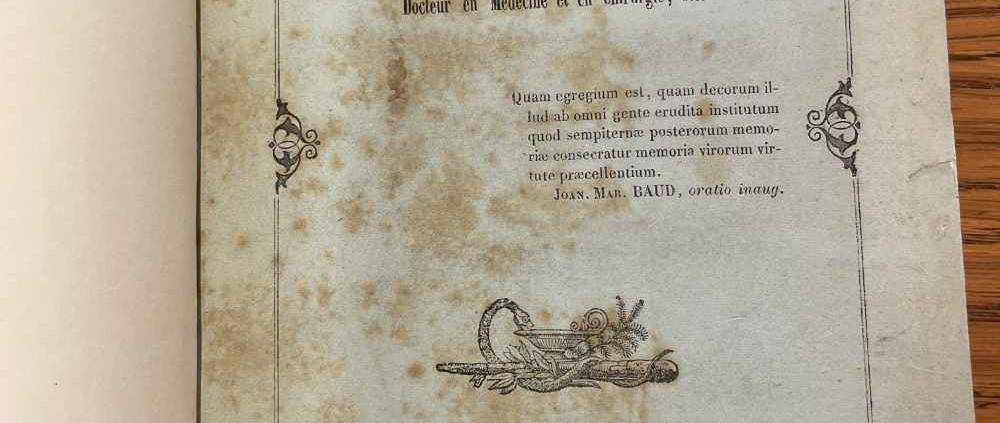 Docteur en Médecine et en Chirurgie,
Quam egregium est, quam decorum il-
lud ab omni gente erudita institutum
quod sempiternæ posterorum memo-
riæ consecratur memoria virorum vir-
tute præcellentium.
Joan. Mar. BAUD, oratio inaug.